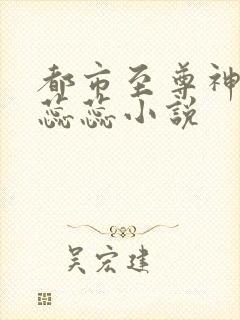 都市至尊神
蕊蕊小说
吴宏建